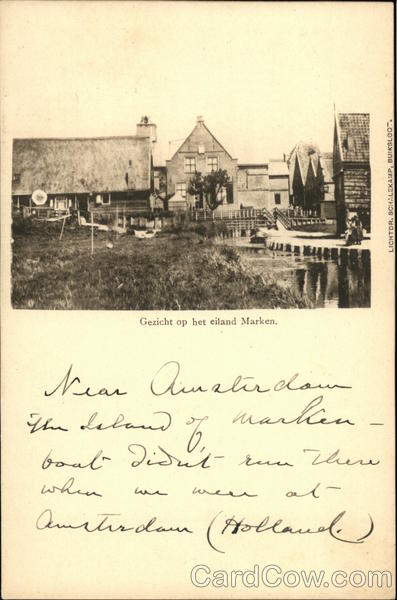 LICHTDR. SCHALEKAMP, BUIKSLOOT.
Gezicht op het eiland Marken.
Near Amsterdam
The Island of Marken –
boat didn't run there
when we were at
Amsterdam (Holland.)
CardCow.com